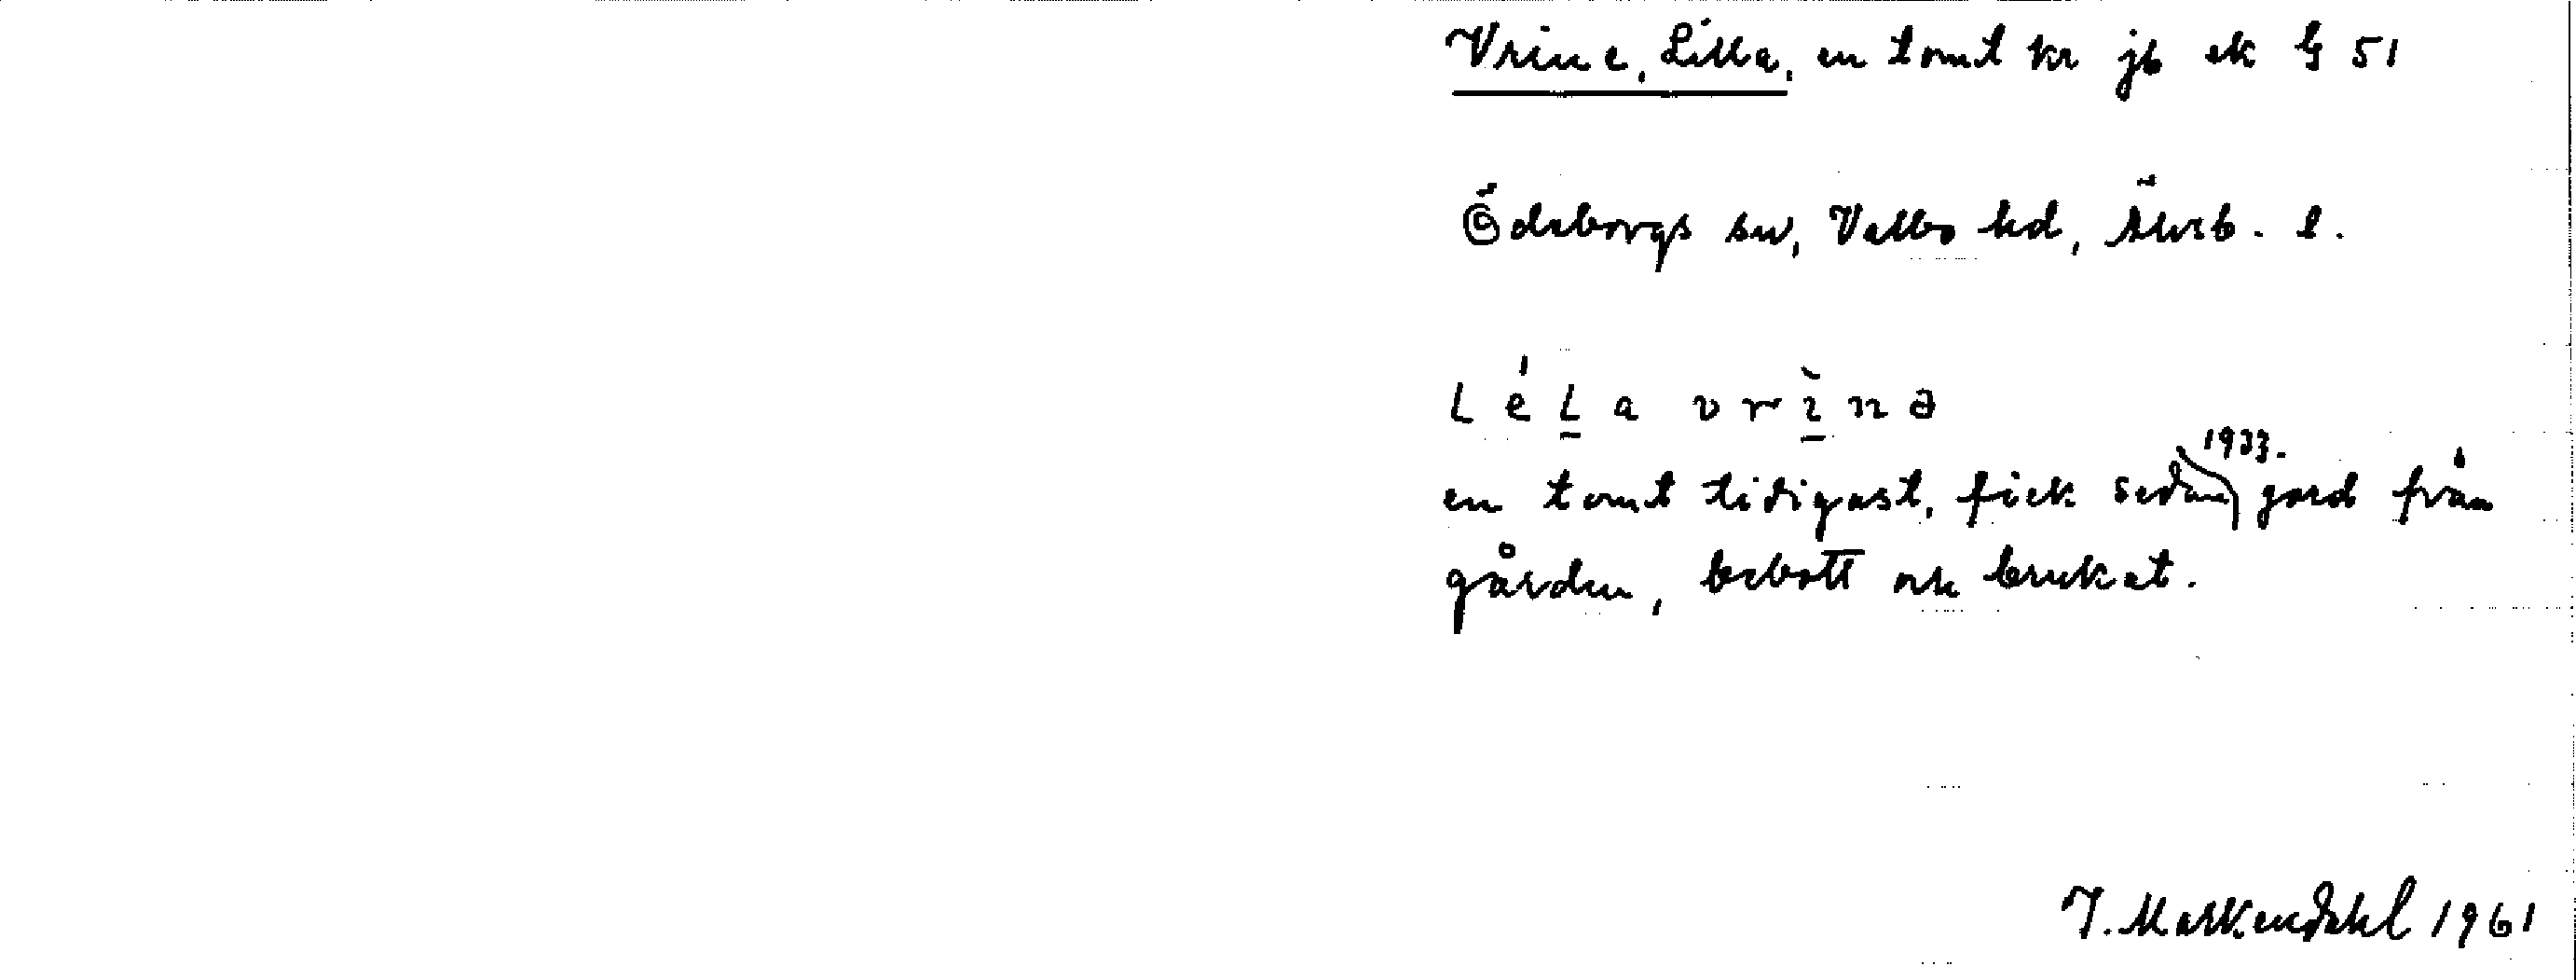 Vrine, Lilla, en tomt kr jb ek G 51
Ödeborgs sn, Valbo hd, Älvsb. l.
l é l a v r ì n ə
1933.
en tomt tidigast, fick sedan jord från
gården, bebott och brukat.
J. Markendahl 1961